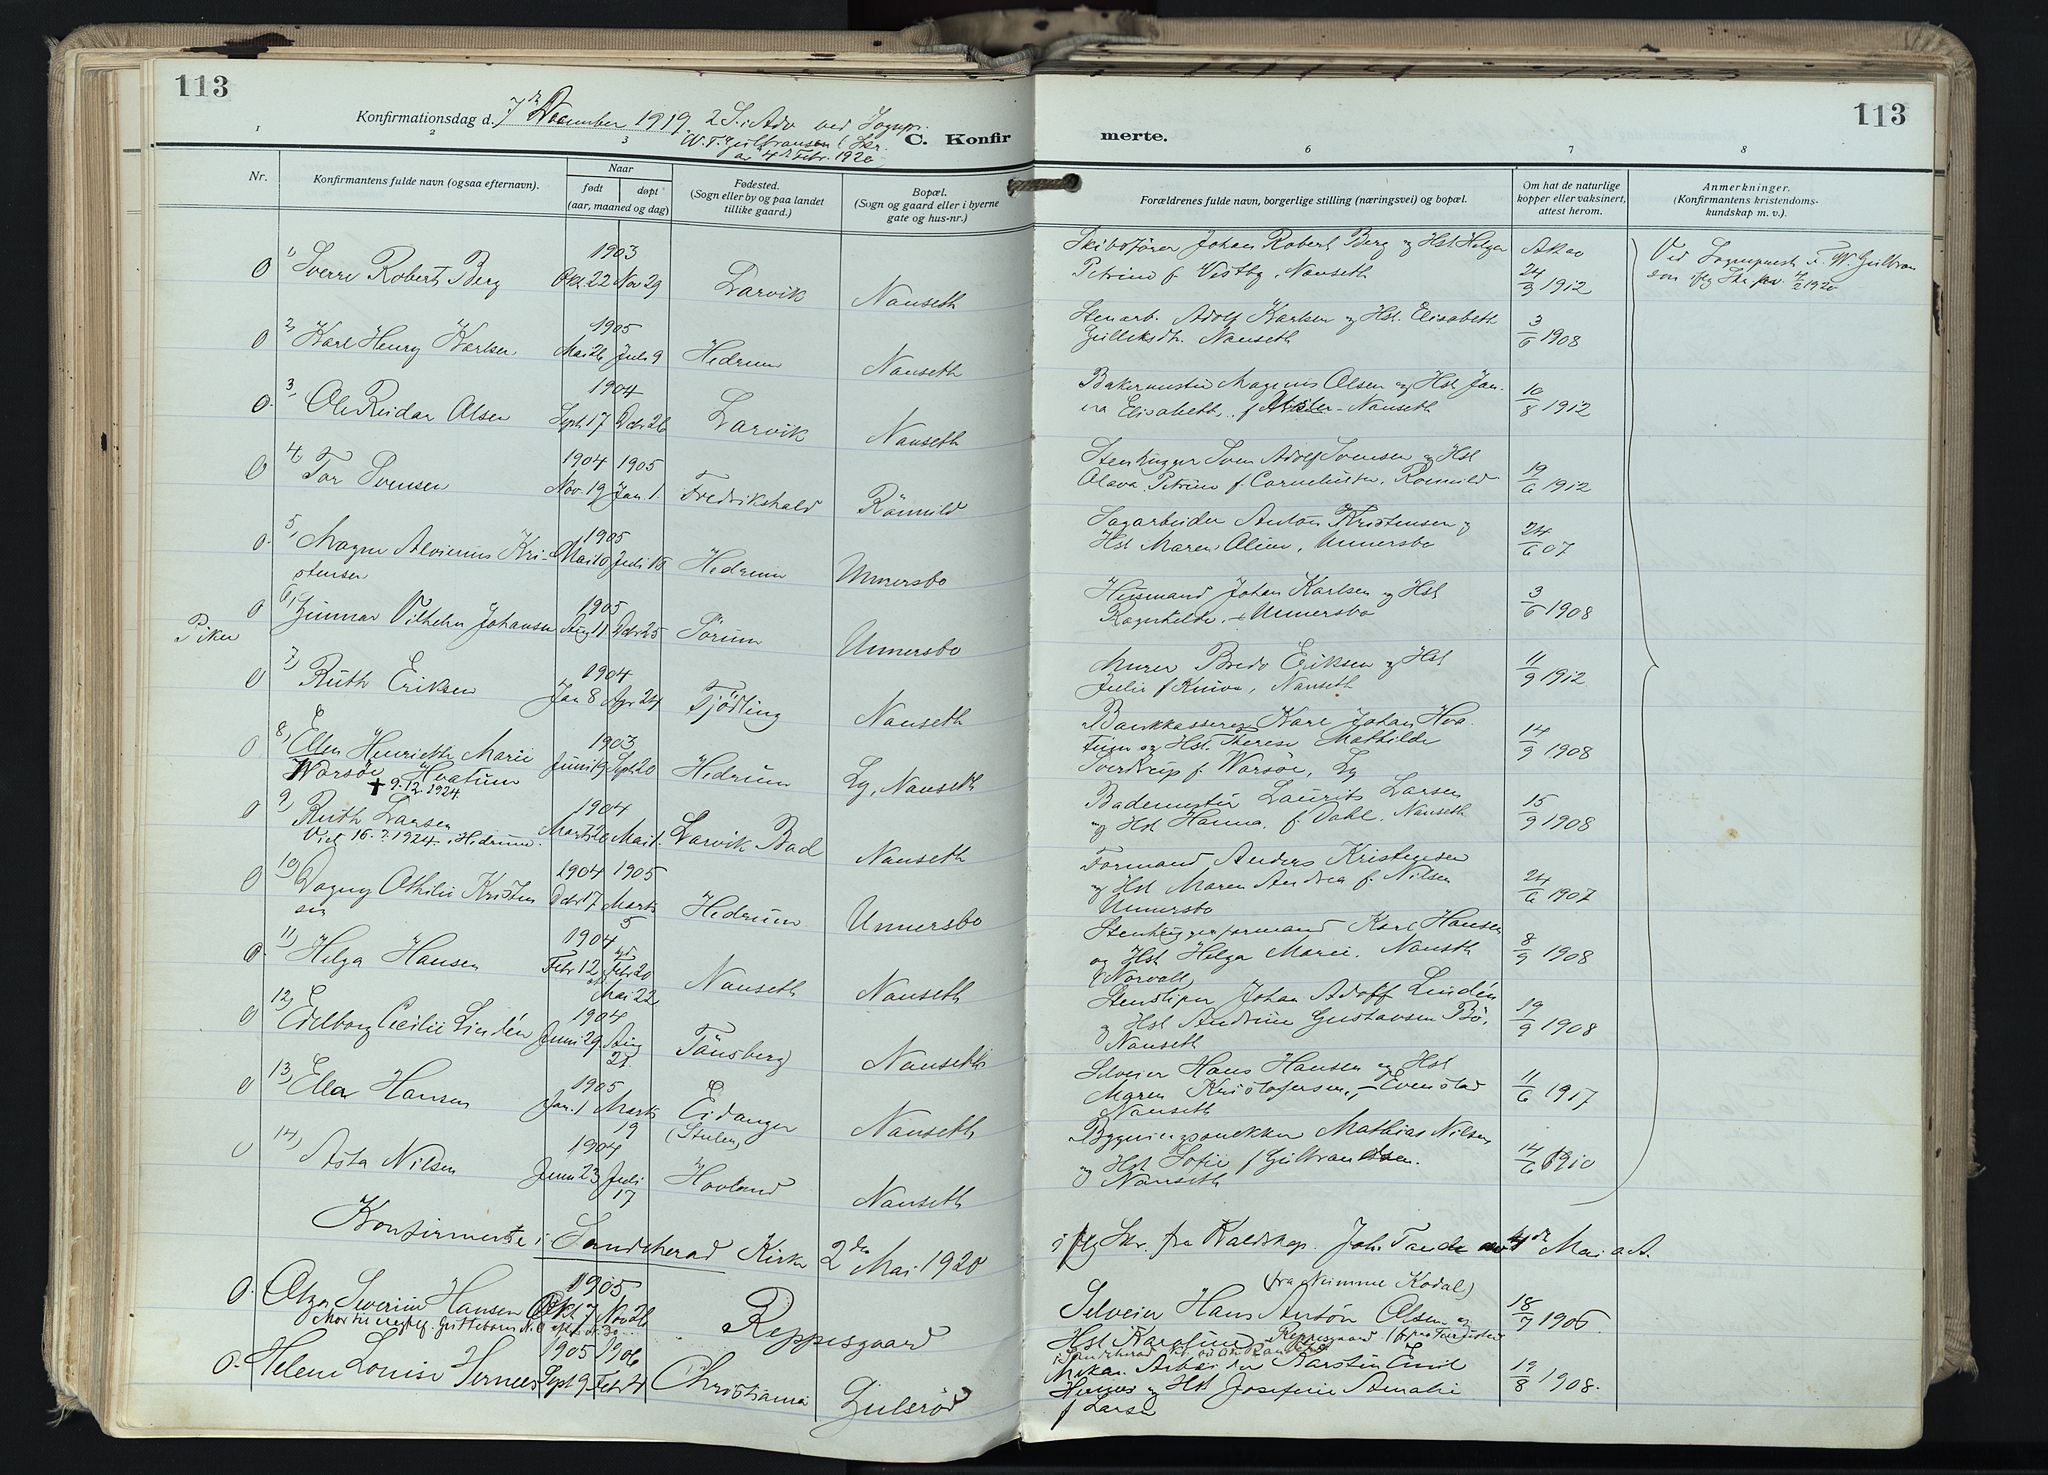 113
113
Konfirmationsdag d. 7de December 1919 2 S. i Adv ved Sognpr.
W. F. Gulbransen (Skr.
av 4de Febr. 1920
C. Konfir
merte.
1 2 3 6 7 8
Nr.
Konfirmantens fulde navn (ogsaa efternavn).
Naar
født døpt
(aar, maaned og dag)
Fødested.
(Sogn eller by og paa landet
tillike gaard.)
Bopæl.
(Sogn og gaard eller i byerne
gate og hus-nr.)
Forældrenes fulde navn, borgerlige stilling (næringsvei) og bopæl.
Om hat de naturlige
kopper eller vaksinert,
attest herom.
Anmerkninger.
(Konfirmantens kristendoms-
kundskap m. v.).
1903
0 1) Sverre Robert Berg Okt 22 Nov 29 Larvik Nanseth
Skibsfører Johan Robert Berg og Hst Helga
Petrine f. Vestby, Nanseth
24/3 1912
Ved Sogneprest F. W. Gulbran
sen iflg Skr 4/2 1920
1905
0 2) Karl Henry Karlsen Mai 26 Juli 9 Hedrum Nanseth
Stenarb. Adolf Karlsen og Hst. Elisabeth
Gulliksdtr. Nanseth
3/6 1908
1904
0. 3) Ole Reidar Olsen Sept 17 Dcbr 26 Larvik Nanseth
Bakermester Magnus Olsen og Hst Jan.
Elisabeth, f. Nanseth
10/8 1912
1904 1905
0 4) Tor Svensen Nov. 19 Jan. 1. Fredrikshald Römmild
Stenhugger Sven Adolf Svensen og Hst
Olava Petrine f Cornelius, Roemild
19/6 1912
1905
0. 5) Magne Alvinius Kri- Mai 10 Juli 16 Hedrum Unnersbo
stensen
Sagarbeider Anton Kristensen og
Hst Maren Oline, Unnersbo
24/6 07
1905
0 6) Gunnar Vilhelm Johansen Aug 11 Dcbr 25 Sörum Unnersbo
Husmand Johan Karlsen og Hst
Ragnhilde, Unnersbo
3/6 1908
Piker
1904
0 7) Ruth Eriksen Jan 8 Apr 24 Tjölling Nanseth
Murer Bredo Eriksen og Hst
Julie f Kniva, Nanseth
11/9 1912
1903
0 8) Ellen Henriette Marie Juni 19 Sept 20 Hedrum Lg, Nanseth
Warsöe Hvatum
✝ 9.12.1924.
Bankkasserer Karl Johan Hva
tum og Hst. Therese Mathilde
Sverdrup f. Warsöe, Lg
14/9 1908
1904
0 9) Ruth Larsen Marts 20 Mai 1. Larvik Bad Nanseth
Viet 16. ?. 1924 i Hedrum.
Bademester Laurits Larsen
og Hst Hanna, f. Dahl, Nanseth
15/9 1908
1904 1905
0 10) Dagny Othilie Kristen Dcbr 17 Marts 5 Hedrum Unnersbo
sen
Formand Anders Kristensen
og Hst Maren Andrea f. Nilsen
Unnersbo
24/6 1907
1904
0. 11) Helga Hansen Febr 12 Febr 20 Nanseth Nanseth
Mai 22
Stenhuggerformand Karl Hansen
og Hst Helga Marie, Nanseth
(Norvald)
8/9 1908
1904
0 12) Edelborg Cecilie Lindén Juni 29 Aug 21. Tönsberg Nanseth
Stensliper Johan Adolf Lindén
og Hst Andrine Gustavsen Bö,
Nanseth
19/9 1908
1905
0 13) Ella Hansen Jan. 1 Marts 19 Eidanger Nanseth
Selveier Hans Hansen og Hst
Maren Kristofersen, Evenstad
Nanseth
11/6 1917
1904
0 14) Asta Nilsen Juni 23 Juli 17 Hovland Nanseth
Bygningssnekker Mathias Nilsen
og Hst Sofie f Gulbrandsen.
Nanseth
14/6 1910
Konfirmerte i Sandeherad Kirke 2den Mai 1920 iflg Skr. fra Kaldskap. Joh. Tande 4de Mai a A.
1905
0. Olga Severine Hansen Okt 17 Nov 26 Reppesgaard
(fra Skimme Kodal)
Selveier Hans Anton Olsen og
Hst Karoline Reppesgaard
18/7 1906
1905 1906
0. Helene Louise Sept 9 Febr 4 Christiania Gulsröd
Mekan. Arbeider Karsten Emil
og Hst Josefine Amalie
f Larsen
19/8 1908.